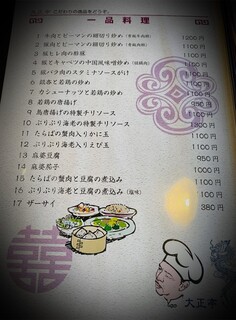 一品料理
1 牛肉とピーマンの細切り炒め（青椒牛肉絲） 1200円
2 豚肉とピーマンの細切り炒め（青椒肉絲） 1100円
3 豚ヒレ肉の酢豚 1100円
4 豚とキャベツの中国風味噌炒め（回鍋肉） 1100円
5 豚バラ肉のスタミナソースがけ
6 若鶏の
7 カシューナッツと若鶏の炒め
8 若鶏の唐揚げ
9 鳥唐揚げの特製チリソース
10 ぷりぷり海老の特製チリソース
11 たらばの蟹肉入りかに玉
12 ぷりぷり海老入りえび玉
13 麻婆豆腐 950円
14 麻婆茄子 1000円
15 たらばの蟹肉と豆腐の煮込み 1100円
16 ぷりぷり海老と豆腐の煮込み（塩味） 1100円
17 ザーサイ 380円
囍
大正亭